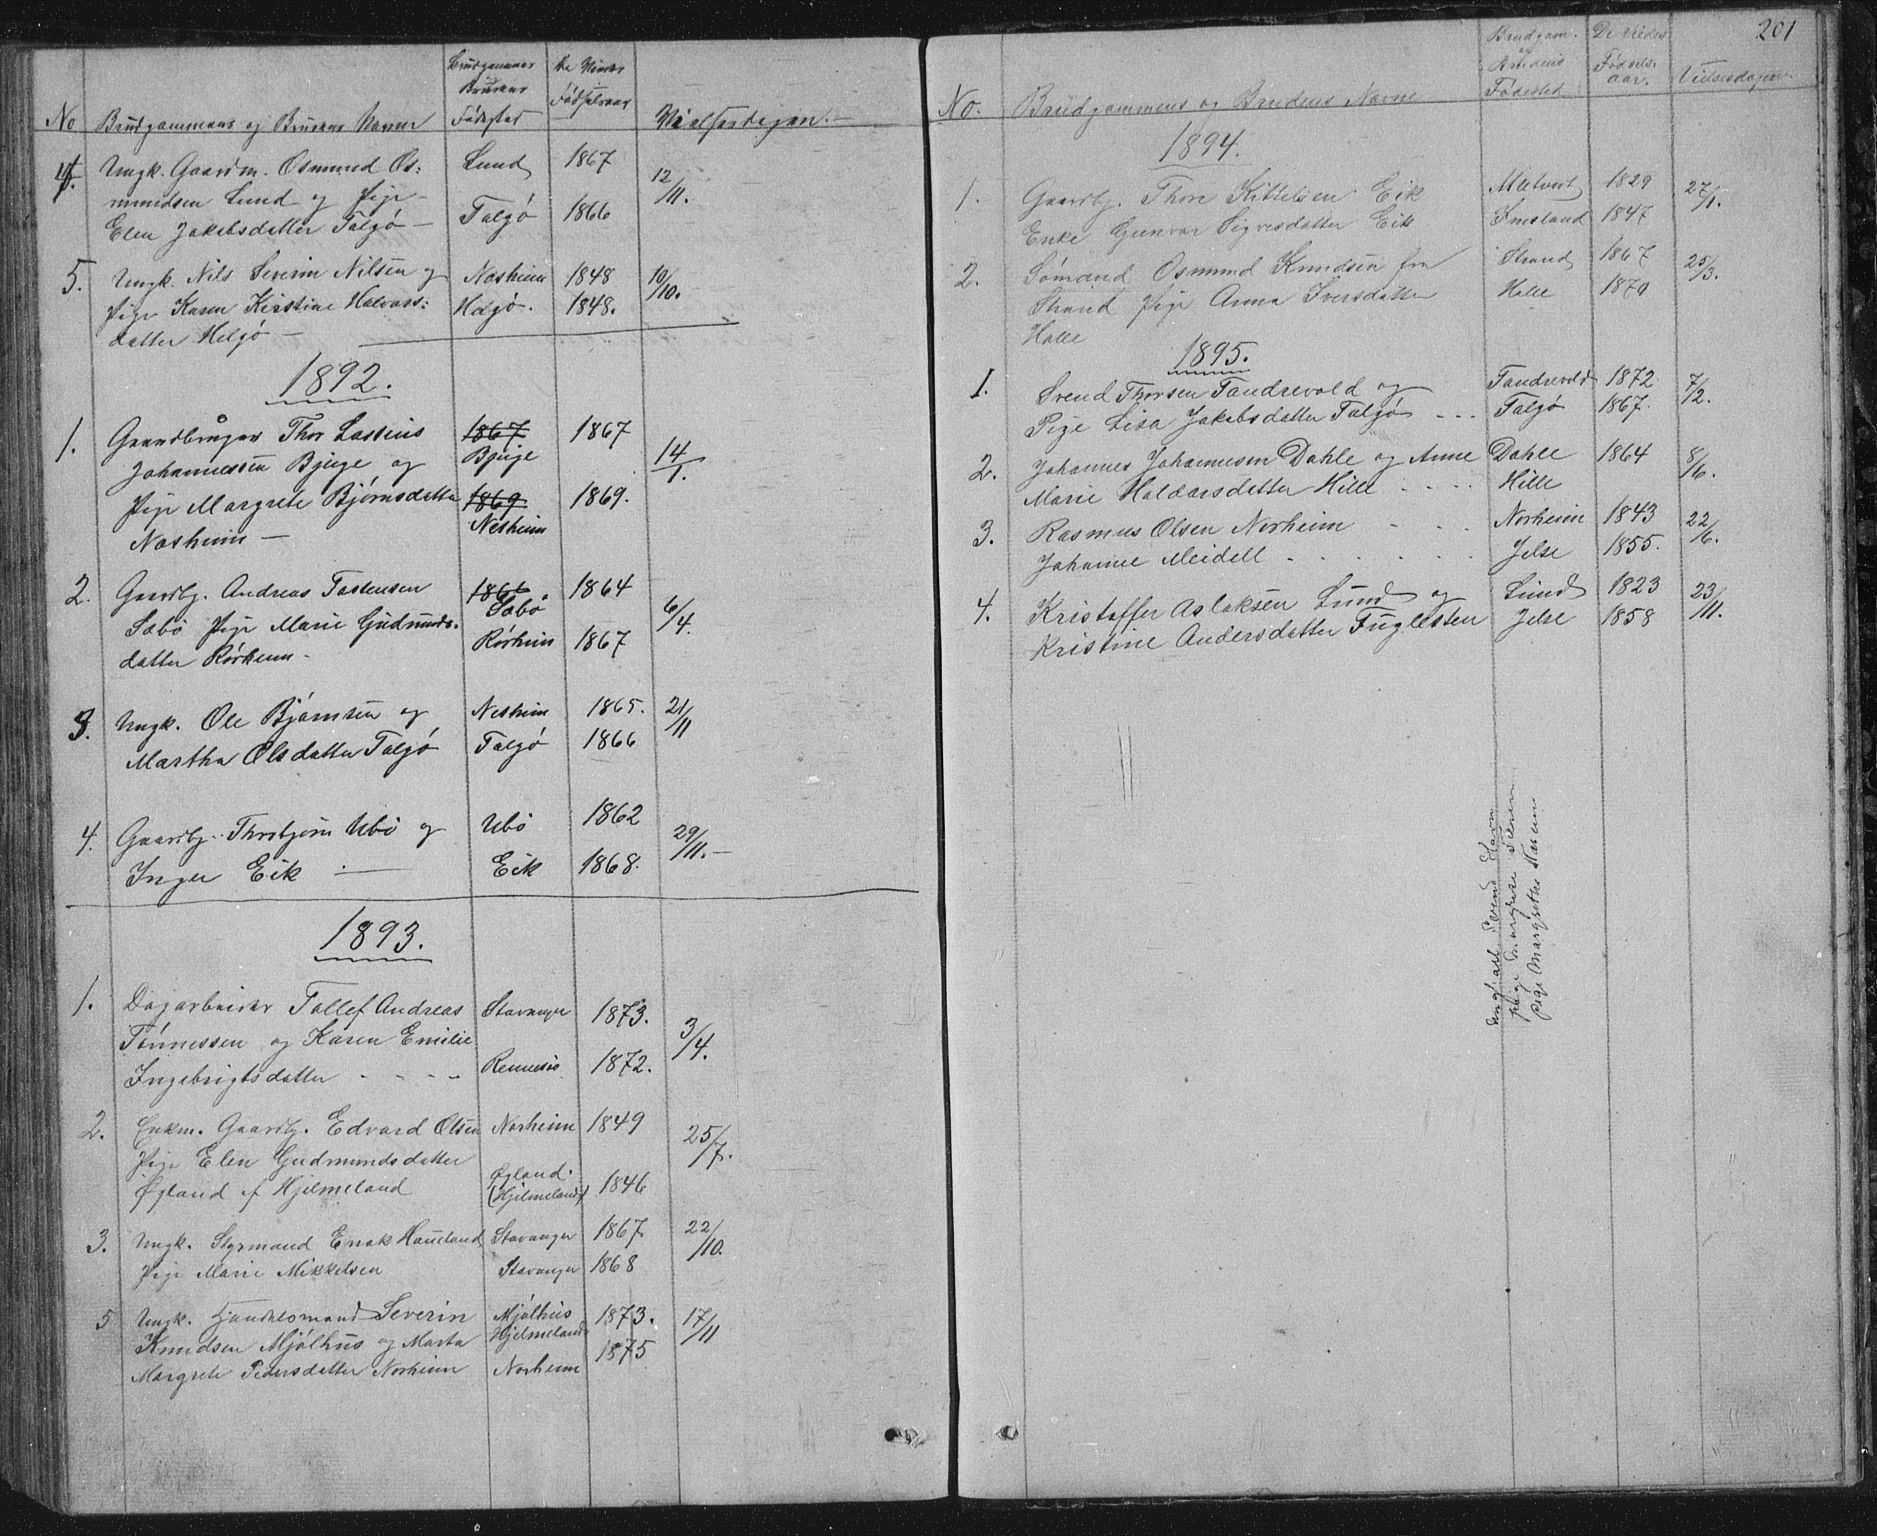 No Brudgommens og Brudens Navne Brudgommens Brudens Fødested De Viedes Fødselsaar Vielsesdagen.
4. Ungk. Gaardm. Osmund Os: Lund 1867 12/11.
mundsen Lund og Pige
Elen Jakobsdatter Talgö Talgö 1866
5. Ungk. Nils Severin Nilsen og Nasheim 1848 10/10.
Pige Karen Kirstine Halvars: Helgö. 1848.
datter Helgö
1892.
1. Gaardbruger Thor Lassius 1867 1867
Johannessen Bjuge og Bjuge 14/1.
Pige Margrete Bjørnsdatter 1869 1869.
Nasheim Nesheim
2. Gaardbg. Andreas Tastensen 1864 1864
Sæbö Pige Marie Gudmunds- Sæbö 6/4.
datter Rørheim Rørheim 1867
3. Ungk. Ole Bjørnsen og Nesheim 1865. 21/11
Martha Olsdatter Talgö Talgö 1866
4. Gaardbg. Thorbjørn Ubö og Ubö 1862 29/11.
Inger Eik Eik 1868.
1893.
1. Dagarbeider Tollef Andreas Stavanger 1873. 3/4.
Tönnessen og Karen Emilie
Ingebrigtsdatter Rennesö 1872.
2. Enkm. Gaardbg. Edvard Olsen Norheim 1849 25/7.
Pige Elen Gudmundsdatter Øgland.
Øgland af Hjelmeland (Hjelmeland) 1846
3. Ungk. Styrmand Enok Haueland Stavanger 1867 22/10.
Pige Marie Mikkelsen Stavanger 1868
5 Ungk. Handelsmand Severin Mjølhus 1873. 17/11
Knudsen Mjølhus og Marta Hjelmeland 1875
Margrete Pedersdatter Norheim Norheim
201
No. Brudgommens og Brudens Navne Brudgom. og Brudens Födested De Viedes Fødsels-aar. Vielsesdagen.
1894.
1. Gaardbg. Thore Kittelsen Eik 1829 27/1.
Enke Gunvor Sigvesdatter Eik Imsland 1847
2. Sömand Osmund Knudsen fra Strand 1867 25/3.
Strand Pige Anna Iversdatter Halle 1870
Halle
1895.
1. Svend Thorsen Tandrevold og Tandrevold 1872 7/2.
Pige Lisa Jakobsdatter Talgö Talgö 1867.
2. Johannes Johannesen Dahle og Anne Dahle 1864 8/6.
Marie Haldorsdatter Hille Hille
3. Rasmus Olsen Norheim Norheim 1843 22/6.
Johanne Meidell Jelse 1855.
4. Kristoffer Aslaksen Lund og Lund 1823 23/11.
Kristine Andersdatter Fuglesten Jelse 1858
Ungkarl Svend
pige Margrete
pige Margrethe